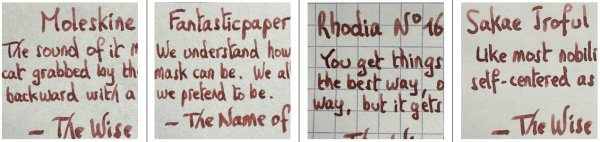 Moleskine
The sound of it
cat grabbed by th
backward with a
– The Wise
Fantasticpaper
We understand how
mask can be. We al
we pretend to be.
– The Name of
Rhodia Nº 16
You get things
the best way, o
way, but it gets
Sakae Iroful
Like most nobili
self-centered as
– The Wise